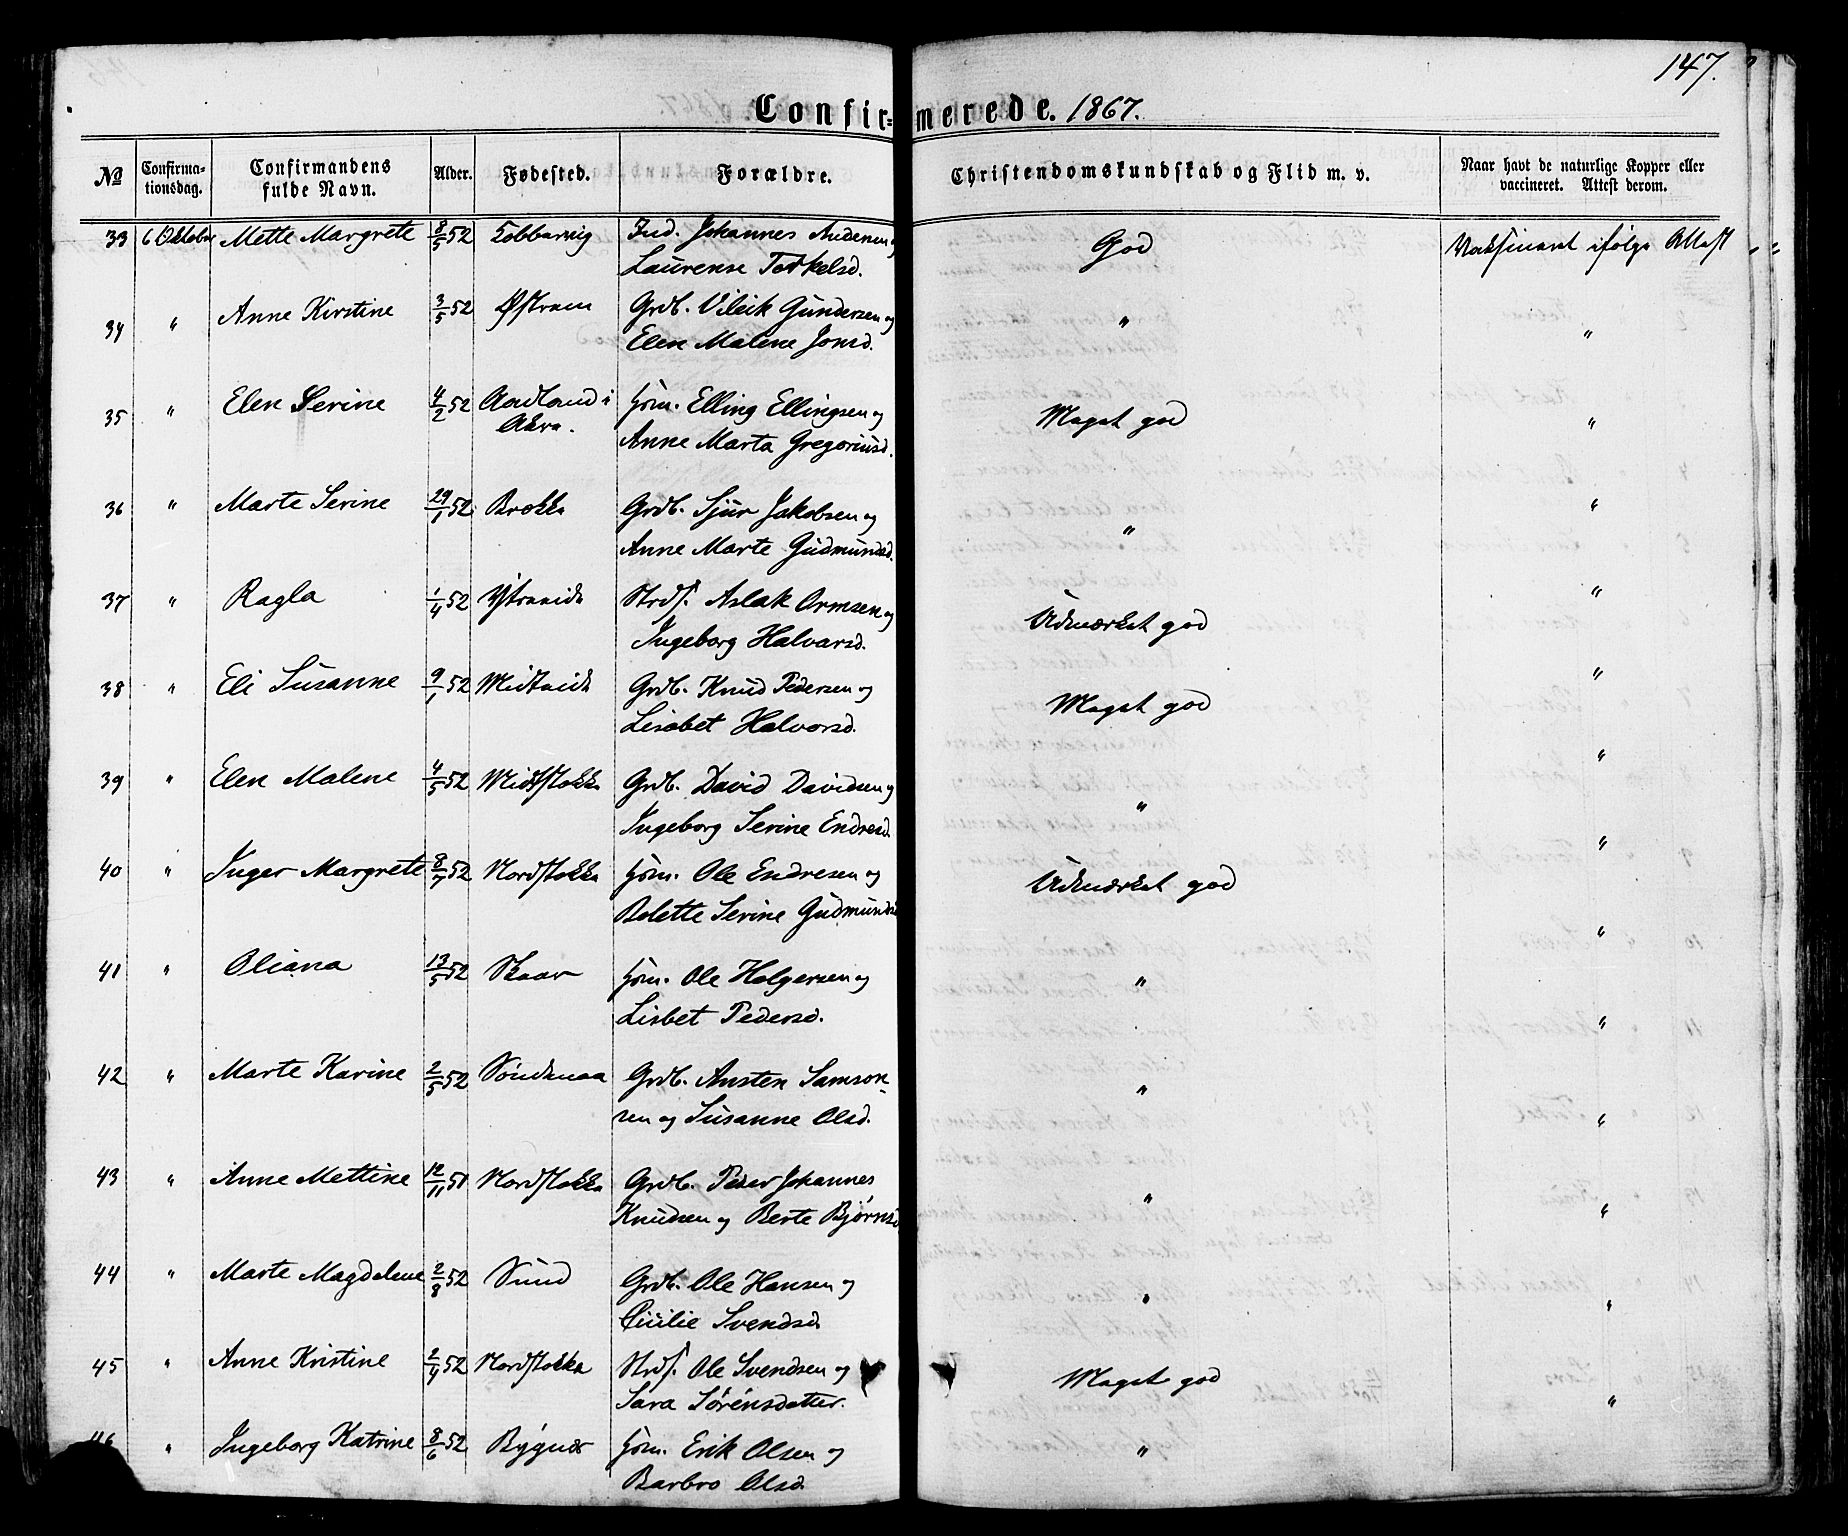 147.
Confir= merede. 1867.
No Confirma-tionsdag. Confirmandens fulde Navn. Alder. Fødested. Forældre. Christendomskundskab og Flid m. v. Naar havt de naturlige Kopper eller vaccineret. Attest derom.
33 6 Oktober Mette Margrete 8/5 52 Kobbervig Ind. Johannes Andersen og God Vaksineret ifølge Attest
Laurense Torkelsd.
34 " Anne Kirstine 3/5 52 Østrem Grdb. Vilsik Gundersen og " "
Elen Malene Jonsd.
35 " Elen Serine 4/2 52 Aadland i Akra. Hsm. Elling Ellingsen og Meget god "
Anne Marta Gregoriusd.
36 " Marte Serine 29/1 52 Brekke Grdb. Sjur Jakobsen og " "
Anne Marte Gudmundsd.
37 " Ragla 1/4 52 Ytreeide Strds. Aslak Ormsen og Udmærket god "
Ingeborg Halvarsd.
38 " Eli Susanne 9/1 52 Midteide Grdb. Knud Pedersen og Meget god "
Lisabet Halvorsd.
39 " Elen Malene 4/5 52 Midtstokke Grdb. David Davidsen og " "
Ingeborg Serine Endresd.
40 " Inger Margrete 8/7 52 Nordstokke Hsm. Ole Endresen og Udmærket god "
Bolette Serine Gudmundsd
41 " Oliana 13/5 52 Skaar Hsm. Ole Helgersen og " "
Lisbet Pedersd.
42 " Marte Karine 2/5 52 Söndenaa Grdb. Austen Samson- " "
sen og Susanne Olsd.
43 " Anne Mettine 12/11 51 Nordstokke Grdb. Peder Johannes " "
Knudsen og Berte Bjørnsd
44 " Marte Magdalene 2/8 52 Sund Grdb. Ole Hansen og " "
Cicilie Svendsd.
45 " Anne Kristine 2/4 52 Nordstokke Strds. Ole Svendsen og Meget god "
Sara Sørensdatter.
46 " Ingeborg Katrine 8/6 52 Bygnes Hsm. Erik Olsen og "
Barbro Olsd.